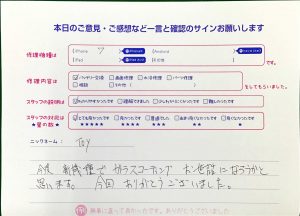 本日のご意見・ご感想など一言と確認のサインお願いします
修理機種は
iPhone 7
Android
iPad
その他
です。
修理内容は
バッテリー交換 画面修理 水没修理 パーツ修理
相談 その他
をしてもらいました。
スタッフの説明は
わかりやすかったです 理解できました 少しわからなかったです 難しかったです
スタッフの対応は
★星の数★
とても良かったです 良かったです 普通でした
★★★★★ ★★★★ ★★★ ★★ ★
ニックネーム：
Toy
今度 新機種で ガラスコーティング お世話になろうかと
思います。 今回 ありがとうございました。
無事に直って良かったです。ありがとうございました